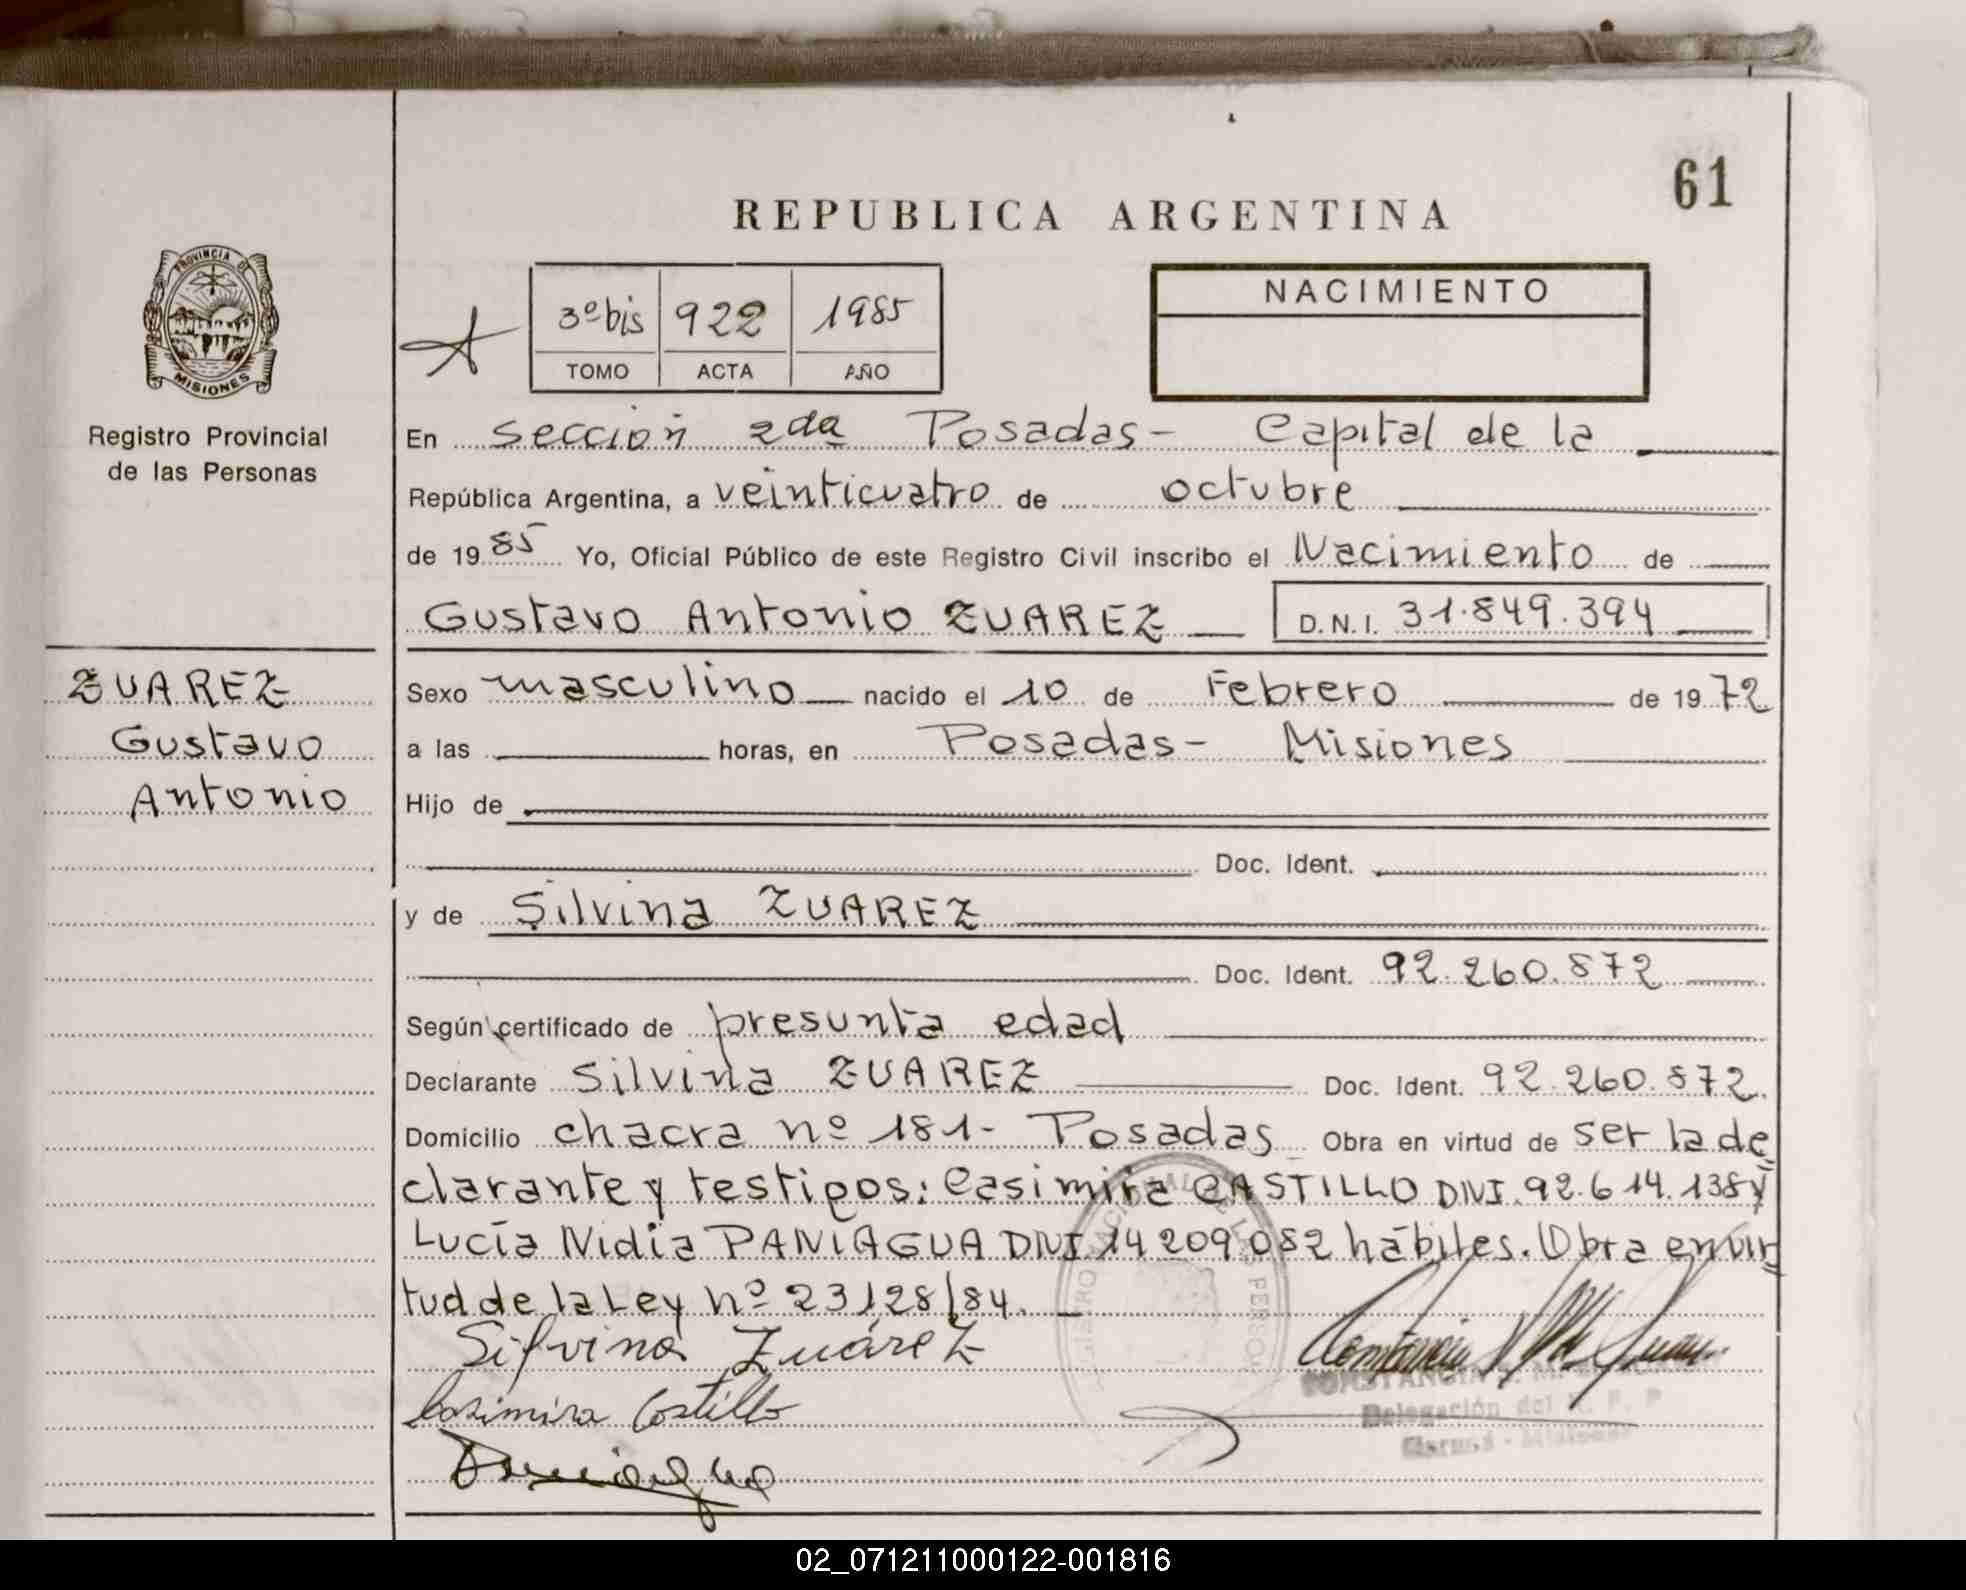 61
REPUBLICA ARGENTINA
PROVINCIA DE
MISIONES
Registro Provincial
de las Personas
3º bis 922 1985
TOMO ACTA AÑO
NACIMIENTO
En sección 2da Posadas- Capital de la
República Argentina, a veinticuatro de octubre
de 1985 Yo, Oficial Público de este Registro Civil inscribo el Nacimiento de
Gustavo Antonio ZUAREZ D.N.I. 31.849.394
ZUAREZ
Gustavo
Antonio
Sexo masculino nacido el 10 de Febrero de 1972
a las horas, en Posadas- Misiones
Hijo de
Doc. Ident.
y de Silvina ZUAREZ
Doc. Ident. 92.260.872
Según certificado de presunta edad
Declarante Silvina ZUAREZ Doc. Ident. 92.260.872.
Domicilio chacra nº 181- Posadas Obra en virtud de ser la de
clarante y testigos: Casimira CASTILLO DNI. 92.614.138 y
Lucía Nidia PANIAGUA DNI 14209082 hábiles. Obra en vir
tud de la Ley nº 23128/84.
Silvina Zuárez
Casimira Castillo
Paniagua
Delegación del R. P. P
02_071211000122-001816